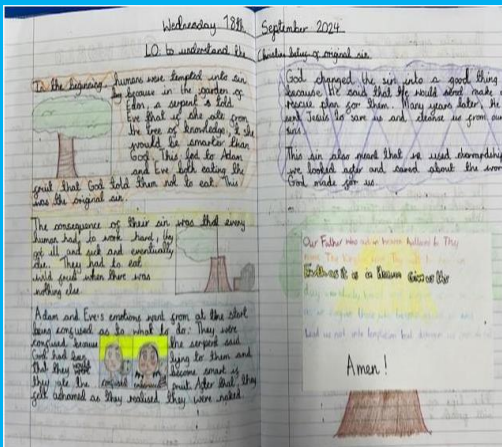 Wednesday 18th September 2024
LO: to understand the Christian belief of original sin.
In the beginning, humans were tempted into sin
because in the garden of
Eden, a serpent told
Eve that if she ate from
the tree of knowledge, she
would be smarter than
God. This led to Adam
and Eve both eating the
fruit that God told them not to eat. This
was the original sin.
The consequence of their sin was that every
human had to work hard, they
got ill and sick and eventually
die. They had to eat
wild food when there was
nothing else
Adam and Eve's emotions went from at the start
being confused as to what to do. They were
confused because the serpent said
God had been lying to them and
that they would become smart if
they ate the fruit. After that, they
confused
felt ashamed as they realised they were naked.
God changed the sin into a good thing
because He said that He would send make a
rescue plan for them. Many years later, he
sent Jesus to save us and cleanse us from our
sins.
This sin also meant that we used stewardship
we looked after and cared about the world
God made for us.
Our Father who art in heaven hallowed be Thy
Earth as it is in Heaven Give us this
Lead us not into temptation but
Amen!